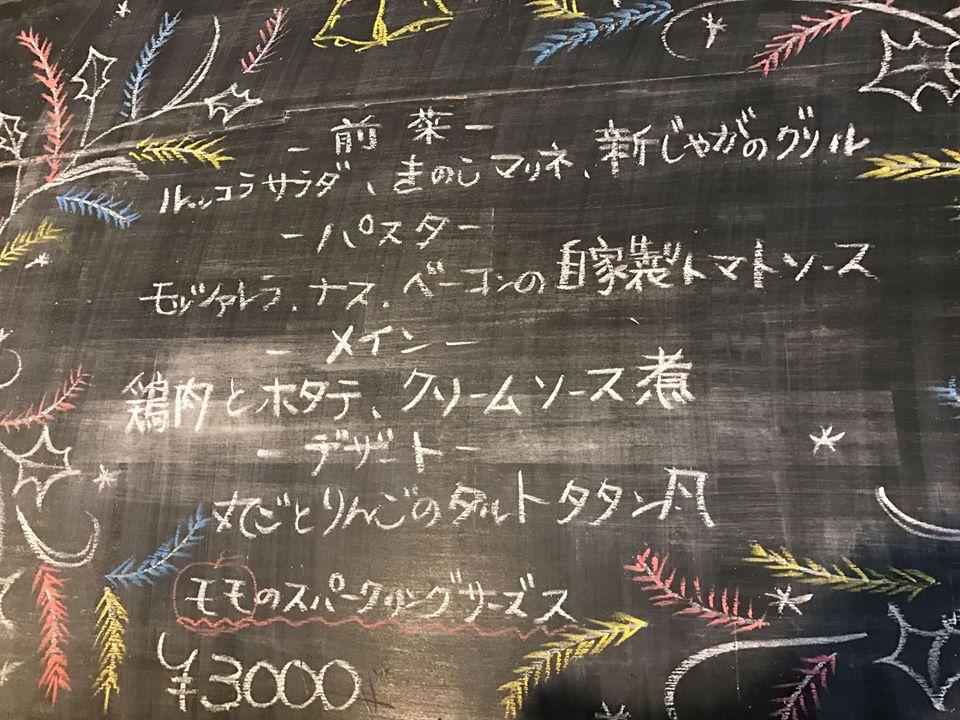 -前菜-
ルッコラサラダ、きのこマリネ、新じゃがのグリル
-パスター
モッツァレラ、ナス、ベーコンの自家製トマトソース
-メイン-
鶏肉とホタテ、クリームソース煮
-デザート-
丸ごとりんごのタルトタタン風
モモのスパークリングサービス
¥3000